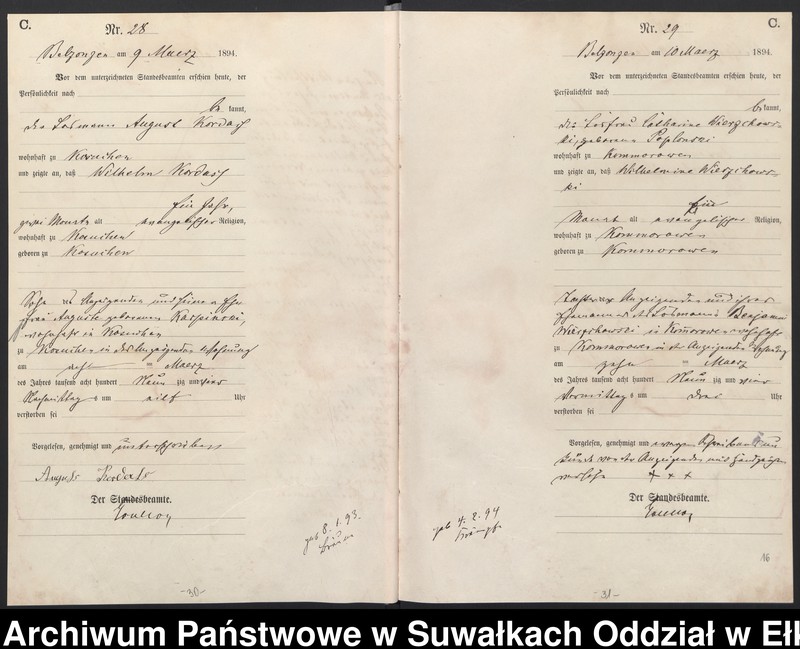 C.
Nr. 28
Belzonzen am 9 Maerz 1894.
Vor dem unterzeichneten Standesbeamten erschien heute, der
Persönlichkeit nach
be kannt,
August Kordass
wohnhaft zu Kosuchen
und zeigte an, daß Wilhelm Kordass
ein Jahr,
zwei Monate alt evangelischer Religion,
wohnhaft zu Kosuchen
geboren zu Kosuchen
Sohn des Anzeigenden und seiner Ehe
frau Auguste geborenen
wohnhaft in Kosuchen
zu Kosuchen in des Anzeigenden Wohnung
am acht ten Maerz
des Jahres tausend acht hundert Neun zig und vier
Nachmittag s um eilf Uhr
verstorben sei
Vorgelesen, genehmigt und unterschrieben
August Kordass
Der Standesbeamte.
geb 8.1.93.
-30-
C.
Nr. 29
Belzonzen am 10 Maerz 1894.
Vor dem unterzeichneten Standesbeamten erschien heute, der
Persönlichkeit nach
be kannt,
die Losfrau Catharine Wierzchows-
ki, geborene
wohnhaft zu Kommorowen
und zeigte an, daß Wilhelmine Wierzchows-
ki
ein
Monat alt evangelischer Religion,
wohnhaft zu Kommorowen
geboren zu Kommorowen
Tochter der Anzeigenden und ihres
Ehemannes des Losmanns Benjamin
Wierzchowski in Komorowen wohnhaft
zu Kommorowen in der Anzeigenden Wohnung
am zehn ten Maerz
des Jahres tausend acht hundert Neun zig und vier
Vormittag s um drei Uhr
verstorben sei
Vorgelesen, genehmigt und wegen Schreibensun
kunde von der Anzeigenden mit Handzeichen
versehen + + +
Der Standesbeamte.
geb 4.2.94
Krämpfe
16
-31-
Archiwum Państwowe w Suwałkach Oddział w Ełk